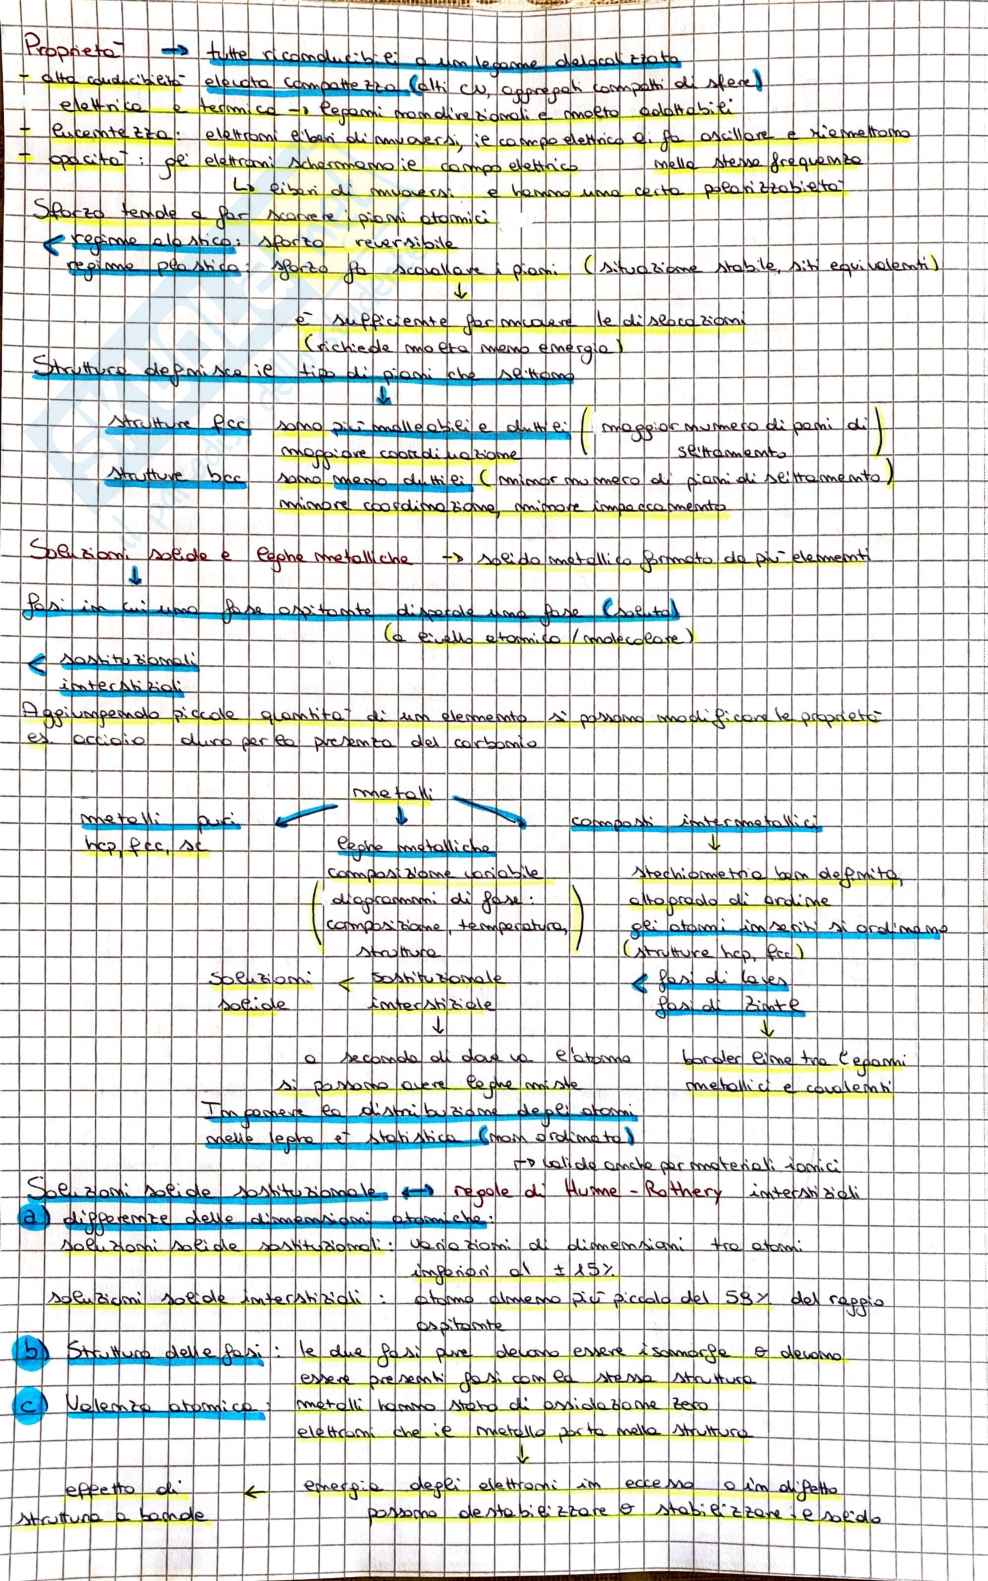 Proprietà → tutte riconducibili a un legame delocalizzato
- alta conducibilità elevata compattezza (alti CN, aggregati compatti di sfere)
elettrica e termica → legami nondirezionali e molto adattabili
- lucentezza: elettroni liberi di muoversi, il campo elettrico li fa oscillare e riemettono
- opacità: gli elettroni schermano il campo elettrico nella stessa frequenza
↳ liberi di muoversi e hanno una certa polarizzabilità
Sforzo tende a far scorrere i piani atomici
< regime elastico: sforzo reversibile
regime plastico: sforzo fa scavallare i piani (situazione stabile, siti equivalenti)
↓
è sufficiente far muovere le dislocazioni
(richiede molta meno energia)
Struttura definisce il tipo di piani che slittano
↓
strutture fcc sono più malleabili e duttili (maggior numero di piani di
maggiore coordinazione slittamento)
strutture bcc sono meno duttili (minor numero di piani di slittamento)
minore coordinazione, minore impaccamento
Soluzioni solide e leghe metalliche → solido metallico formato da più elementi
↓
fasi in cui una fase ospitante discioglie una fase (soluto)
(a livello atomico/molecolare)
< sostituzionali
interstiziali
Aggiungendo piccole quantità di un elemento si possono modificare le proprietà
es acciaio duro per la presenza del carbonio
metalli
metalli puri composti intermetallici
hcp, fcc, sc ↓
leghe metalliche
composizione variabile stechiometria ben definita,
(diagrammi di fase: alto grado di ordine
composizione, temperatura, gli atomi inseriti si ordinano
struttura) (strutture hcp, fcc)
soluzioni < sostituzionale < fasi di Laves
solide interstiziale fasi di Zintl
↓ ↓
a seconda di dove va l'atomo border line tra legami
si possono avere leghe miste metallici e covalenti
In genere la distribuzione degli atomi
nelle leghe è statistica (non ordinata)
→ valide anche per materiali ionici
Soluzioni solide sostituzionale ↔ regole di Hume-Rothery interstiziali
a) differenze delle dimensioni atomiche:
soluzioni solide sostituzionali: variazioni di dimensioni tra atomi
inferiori al ±15%
soluzioni solide interstiziali: atomo almeno più piccolo del 59% del raggio
ospitante
b) Struttura delle fasi: le due fasi pure devono essere isomorfe e devono
essere presenti fasi con la stessa struttura
c) Valenza atomica: metalli hanno stato di ossidazione zero
elettroni che il metallo porta nella struttura
↓
effetto di ← energia degli elettroni in eccesso o in difetto
struttura a bande possono destabilizzare o stabilizzare il solido